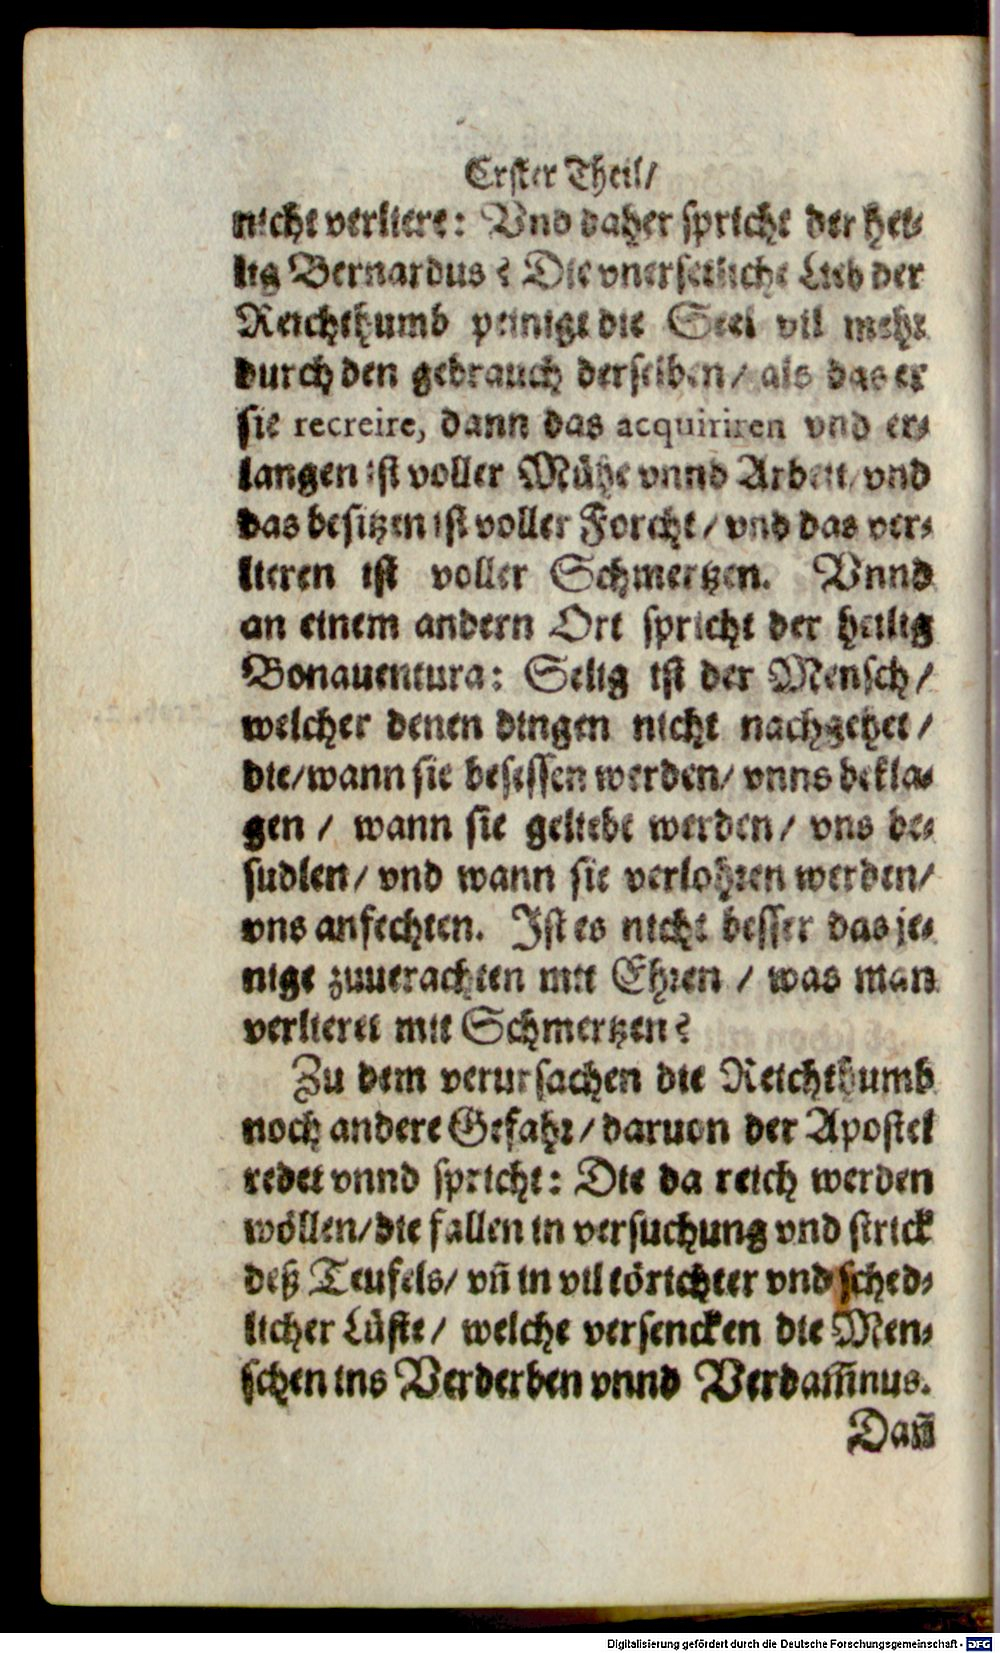 Erster Theil/
nicht verliere: Vnd daher spricht der hei-
lig Bernardus? Die vnersetliche Lieb der
Reichthumb peiniget die Seel vil mehr
durch den gebrauch derselben/ als das er
sie recreire, dann das acquiriren vnd er-
langen ist voller Mühe vnnd Arbeit/ vnd
das besitzen ist voller Forcht/ vnd das ver-
lieren ist voller Schmertzen. Vnnd
an einem andern Ort spricht der heilig
Bonauentura: Selig ist der Mensch/
welcher denen dingen nicht nachgehet/
die/wann sie besessen werden/ vnns bekla-
gen/ wann sie geliebt werden/ vns be-
sudlen/ vnd wann sie verlohren werden/
vns anfechten. Ist es nicht besser das je-
nige zuuerachten mit Ehren/ was man
verlieret mit Schmertzen?
Zu dem verursachen die Reichthumb
noch andere Gefahr/ daruon der Apostel
redet vnnd spricht: Die da reich werden
wöllen/die fallen in versuchung vnd strick
deß Teufels/ vñ in vil törichter vnd sched-
licher Lüste/ welche versencken die Men-
schen ins Verderben vnnd Verdam̃nus.
Dañ
Digitalisierung gefördert durch die Deutsche Forschungsgemeinschaft - DFG